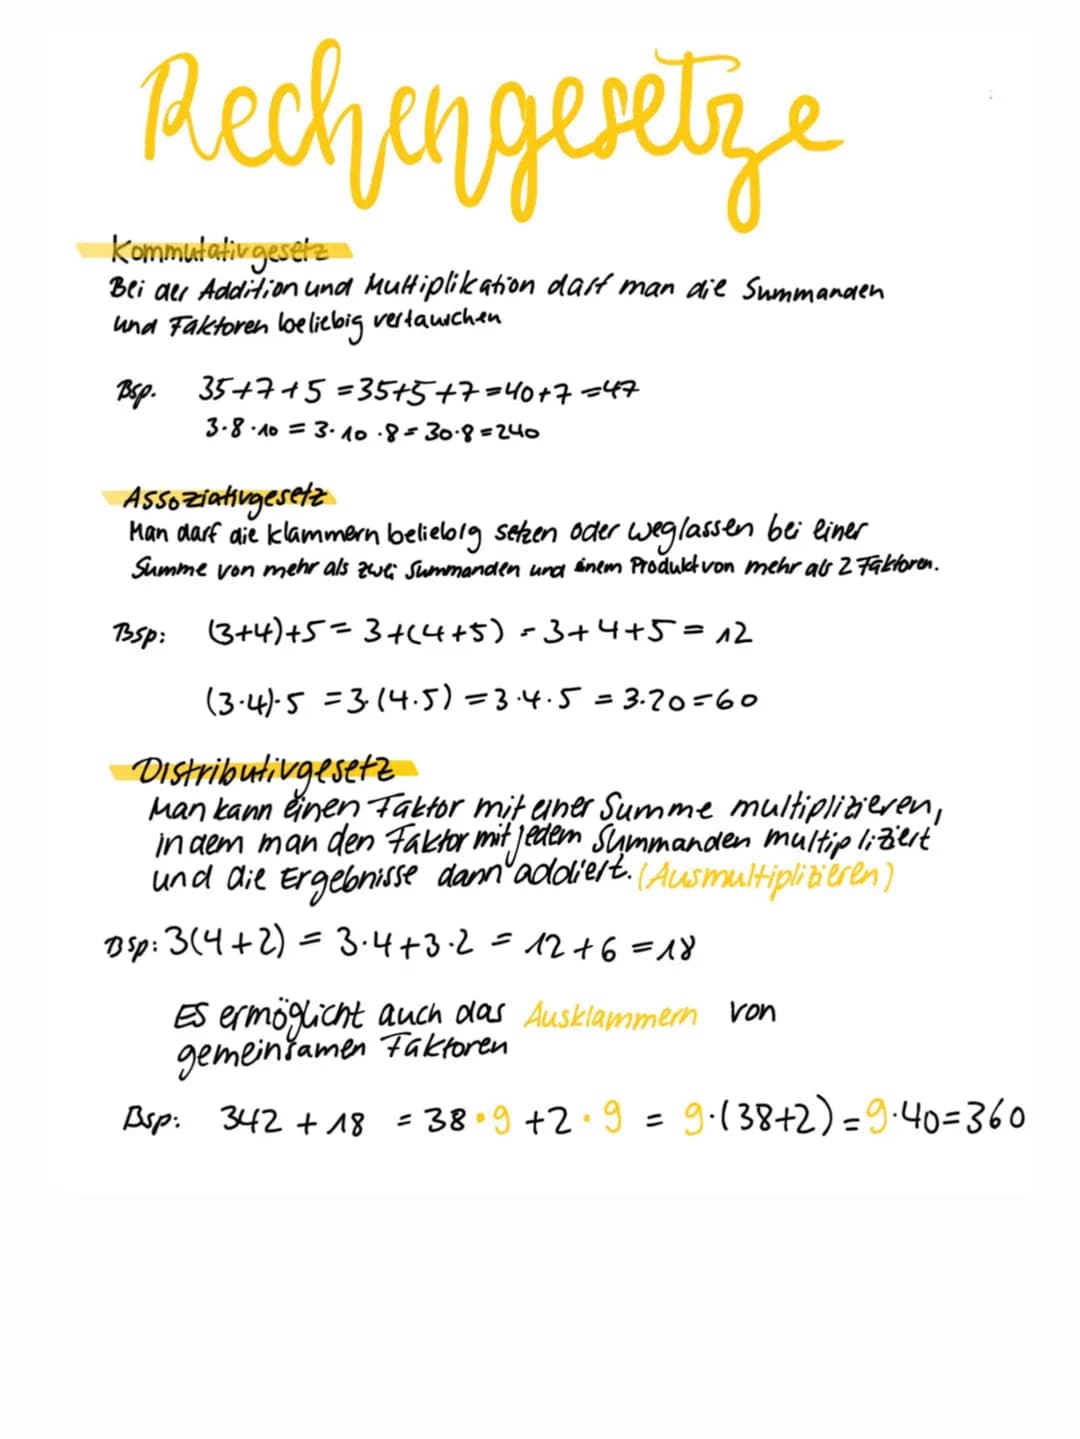 Rechengesetze
Kommutativgesetz
Bei der Addition und Multiplikation darf man die Summanden
und Faktoren beliebig vertauschen
Bsp. 35+7+5 = 35+5+7 = 40+7 = 47
3·8·10 = 3·10·8 = 30·8 = 240
Assoziativgesetz
Man darf die Klammern beliebig setzen oder weglassen bei einer
Summe von mehr als zwei Summanden und einem Produkt von mehr als 2 Faktoren.
Bsp: (3+4)+5 = 3+(4+5) = 3+4+5 = 12
(3·4)·5 = 3·(4·5) = 3·4·5 = 3·20 = 60
Distributivgesetz
Man kann einen Faktor mit einer Summe multiplizieren,
indem man den Faktor mit jedem Summanden multipliziert
und die Ergebnisse dann addiert. (Ausmultiplizieren)
Bsp: 3(4+2) = 3·4+3·2 = 12+6 = 18
Es ermöglicht auch das Ausklammern von
gemeinsamen Faktoren
Bsp: 342 + 18 = 38·9 + 2·9 = 9·(38+2) = 9·40 = 360